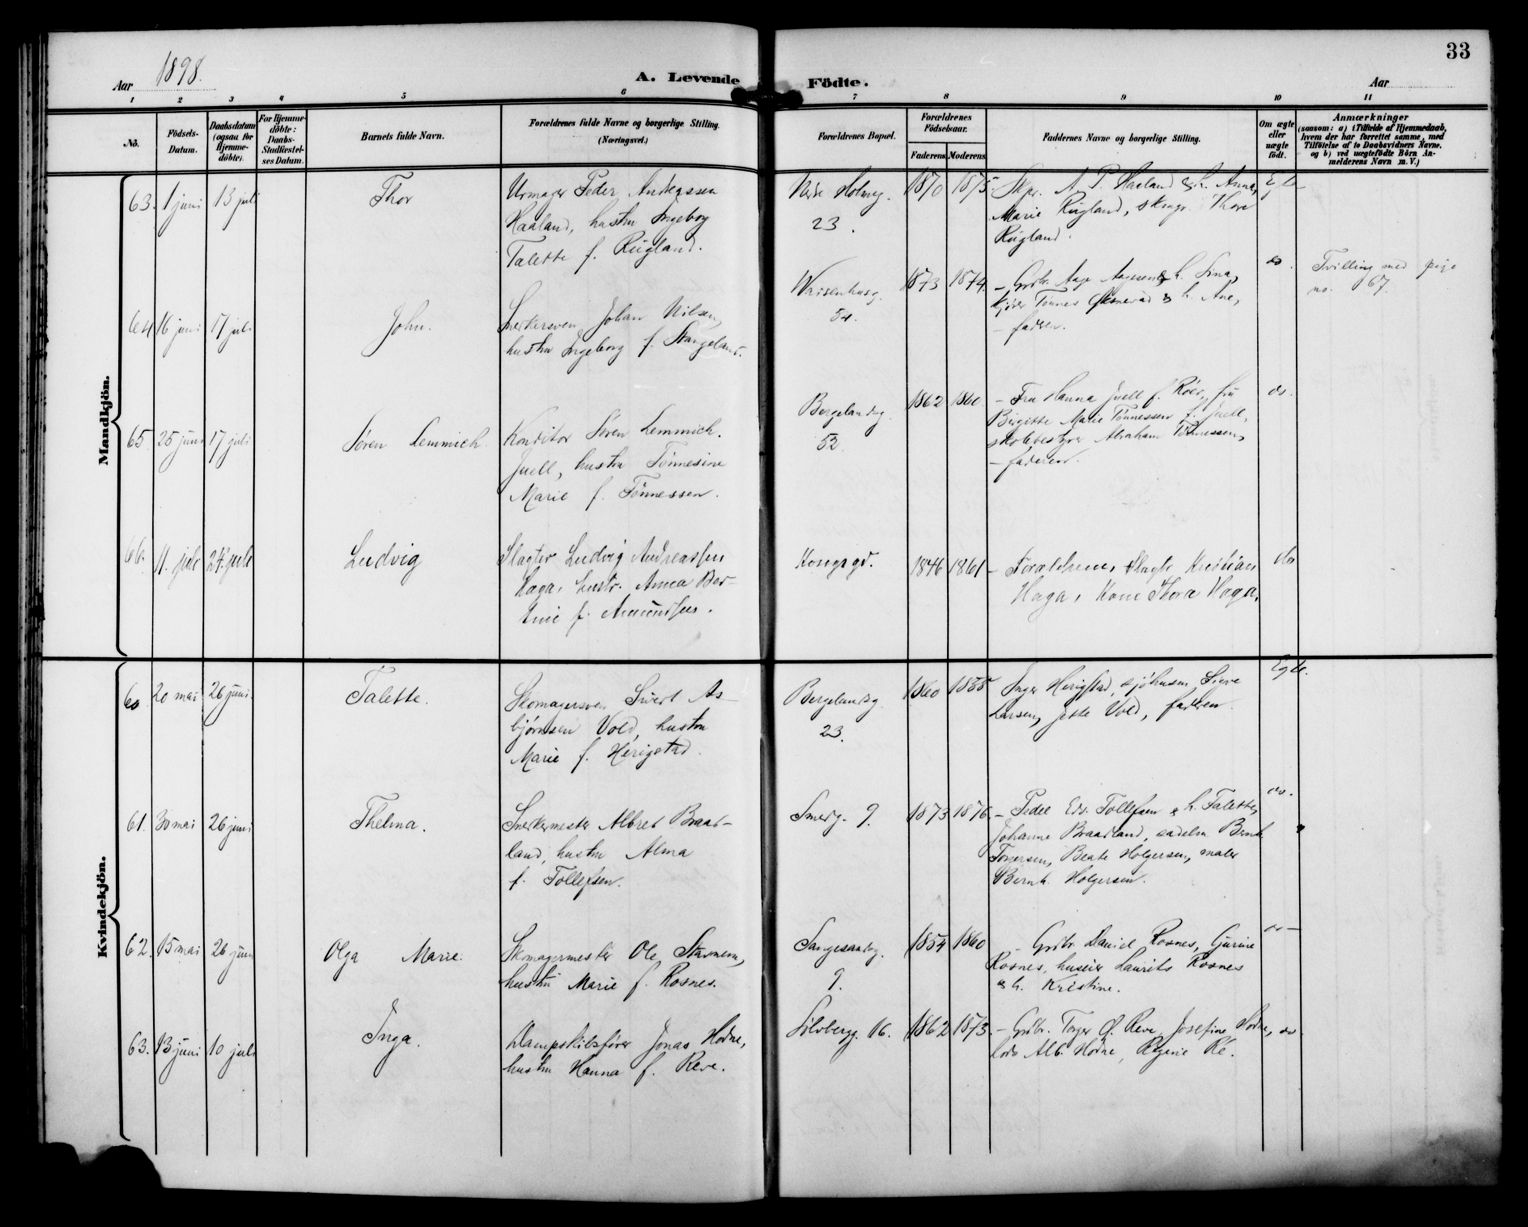 33
Aar 1898.
A. Levende Födte.
Aar
1 2 3 4 5 6 7 8 9 10 11
No.
Födsels-Datum.
Daabsdatum (ogsaa for Hjemmedöbte).
For Hjemmedöbte: Daabs-Stadfæstelses Datum.
Barnets fulde Navn.
Forældrenes fulde Navne og borgerlige Stilling. (Næringsvei.)
Forældrenes Bopæl.
Forældrenes Födselsaar.
Faderens Moderens
Faddernes Navne og borgerlige Stilling.
Om ægte eller uægte födt.
Anmærkninger
(saasom: a) i Tilfælde af Hjemmedaab, hvem der har forrettet samme, med Tilföielse af to Daabsvidners Navne, og b) ved uægtefödte Börn Anmelderens Navn m. V.)
Mandkjön.
63. 1 juni 13 juli Thor
Urmager Peder Andreassen
Haaland, hustru Ingeborg
Talette f. Rügland.
23.
1870 1875
Skpr. A. P. Haaland & h. Anna,
Marie Rügland, Thora
Rügland.
Egte
64 16 juni 17 juli John.
Snekkersven Johan Nilsen,
hustru Ingeborg f. Stangeland.
Waisenhusg.
54.
1873 1874.
faderen.
do.
Tvilling med pige
no. 67
65 25 juni 17 juli Søren Lemmich.
Konditor Søren Lemmich
Juell, hustru Tønnesine
Marie f. Tønnessen.
Bergelandsg.
52.
1862 1860
– Fru Hanna Juell f. Röer, fru
Birgitte Marie Tønnessen f. Juell,
skolebestyrer Abraham Tønnessen,
– faderen.
do.
66. 11. juli 24. juli Ludvig
Slagter Ludvig Andreassen
Haga, hustr. Anna
f. Amundsen.
1846 1861
– Forældrene, Slagter Kristian
Haga, Kone Thora Haga.
do
Kvindekjön.
60 20 mai 26 juni. Talette.
Skomagersven Sivert As-
bjørnsen Vold, hustru
Marie f. Herigstad.
Bergelandsg.
23.
1860 1855
Inger Herigstad,
Larsen, Jette Vold, faderen.
Egte.
61. 30 mai 26 juni Thelma.
Snekkermester Albret Braad-
land, hustru Alma
f. Tollefsen.
Smedg. 9.
1873 1876
– Peder Edv. Tollefsen & h. Talette,
Johanne Braadland, Bernh.
Beate Holgersen, maler
Bernh. Holgersen.
do.
62. 15 mai 26 juni Olga Marie.
Skomagermester Ole Stavnem,
hustru Marie f. Rosnes.
Langesandg.
9.
1854 1860
– Gdbr. Daniel Rosnes, Gurine
Rosnes, huseier Laurits Rosnes
& h. Kristine.
do
63. 13 juni 10 juli Inga.
Dampskibsfører Jonas Hodne,
hustru Hanna f. Reve.
Sölvbergg. 16.
1862 1873.
– Gdbr. Reve, Josefine Hodne,
lods Alb. Hodne,
do